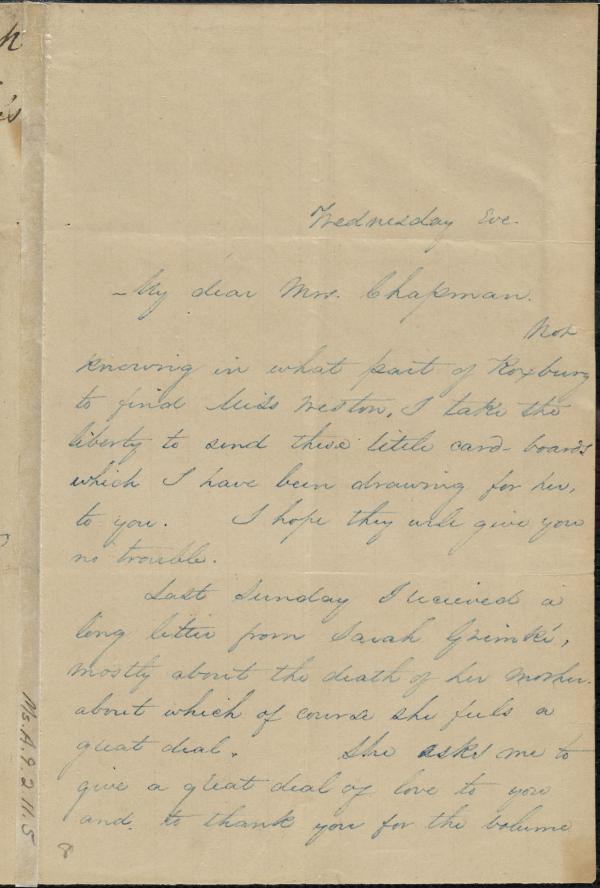 h
's
Wednesday Eve.
My dear Mrs. Chapman.
Not
knowing in what part of Roxbury
to find Miss Weston, I take the
liberty to send these little card-boards
which I have been drawing for her,
to you. I hope they will give you
no trouble.
Last Sunday I recieved a
long letter from Sarah Grimké,
mostly about the death of her Mother.
about which of course she feels a
great deal. She asks me to
give a great deal of love to you
and to thank you for the volume
8
Ms.A.9.2 11.5